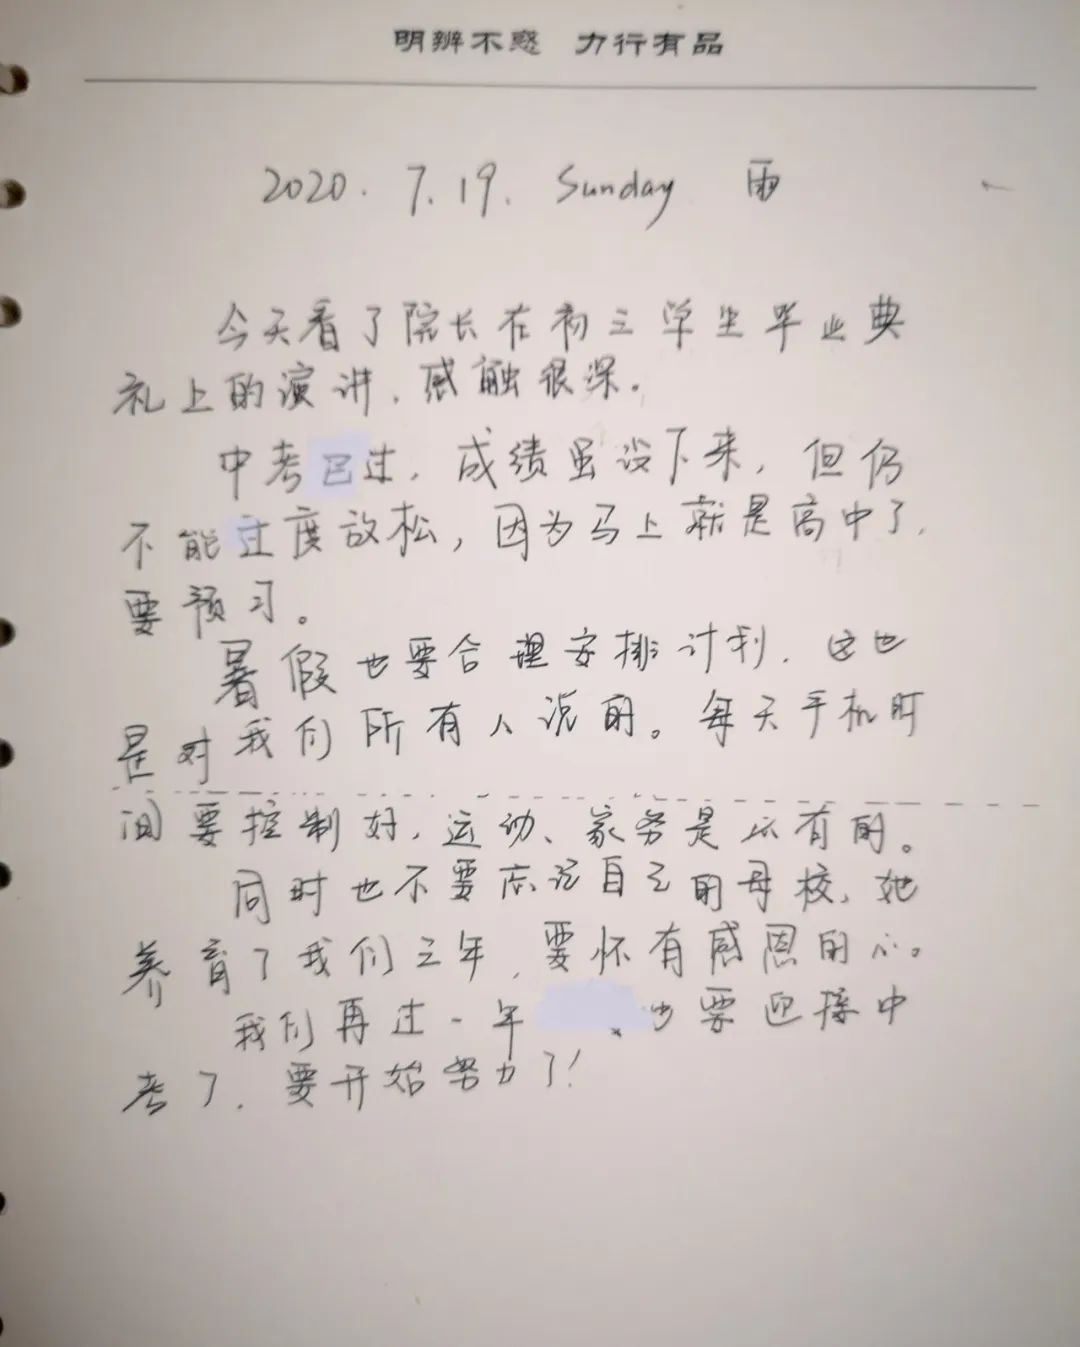 明辨不惑 力行有品
2020. 7.19. Sunday 雨
今天看了院长在初三学生毕业典
礼上的演讲,感触很深。
中考已过,成绩虽没下来,但仍
不能过度放松,因为马上就是高中了,
要预习。
暑假也要合理安排计划,这也
是对我们所有人说的。每天手机时
间要控制好,运动、家务是必有的。
同时也不要忘记自己的母校,她
养育了我们三年,要怀有感恩的心。
我们再过一年 也要迎接中
考了,要开始努力了!